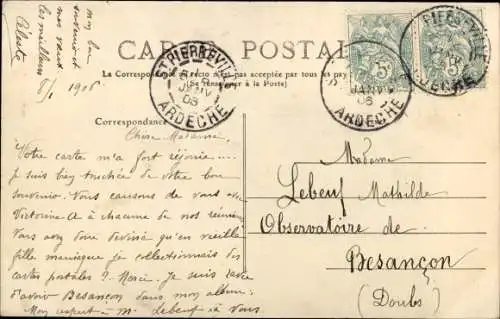 mon bon
souvenir et
mes vœux
les meilleurs
Céleste
8/1 1906
CARTE POSTALE
La Correspondance au recto n'est pas acceptée par tous les pays
(Se renseigner à la Poste)
ST PIERREVILLE
JANV
ARDECHE
ARDECHE
Correspondance
Chère Madame,
Votre carte m'a fort réjouie...
je suis bien touchée de votre bon
souvenir. Nous causons de vous avec
Victorine à chacune de nos réunions
Vous avez donc deviné qu'en vieille
fille maniaque je collectionnais les
cartes postales ? Merci. Je suis ravie
d'avoir Besançon dans mon album.
Mon respect à M. Lebeuf à vous
Madame
Lebeuf Mathilde
Observatoire de
Besançon
(Doubs)